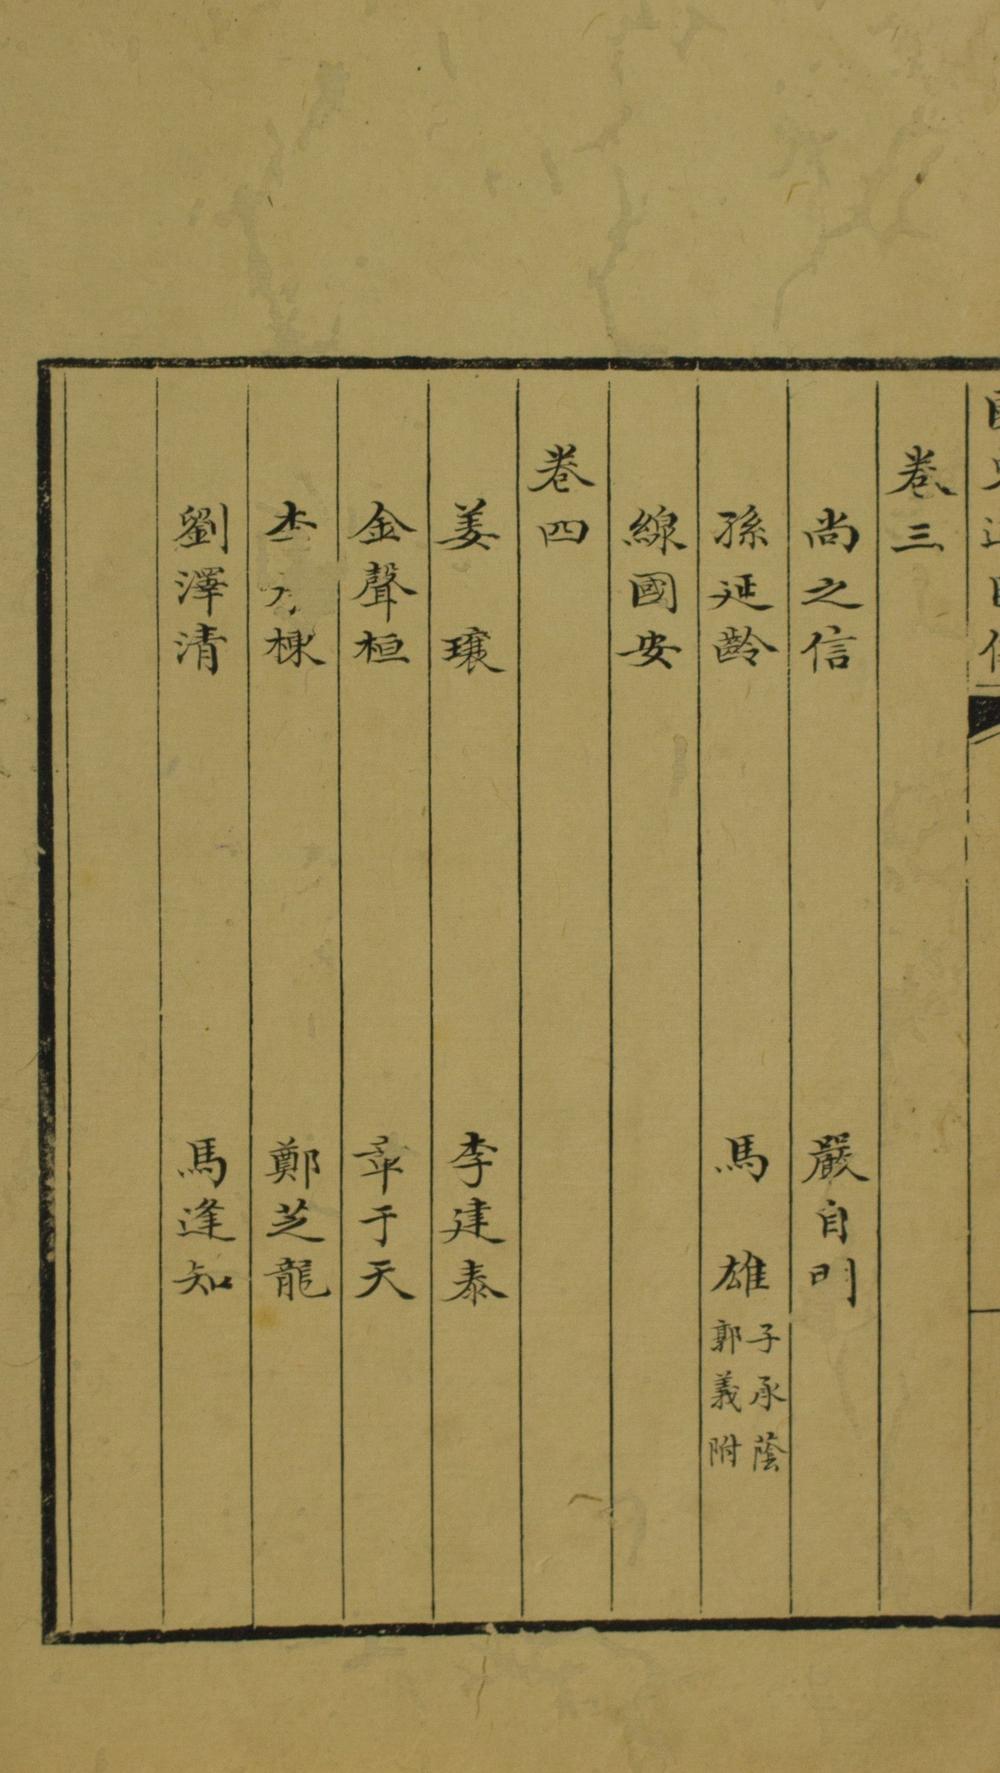 卷三
尚之信 嚴自明
孫延齡 馬雄 子承蔭 郭義附
線國安
卷四
姜瓖 李建泰
金聲桓 章于天
李 棟 鄭芝龍
劉澤清 馬逢知